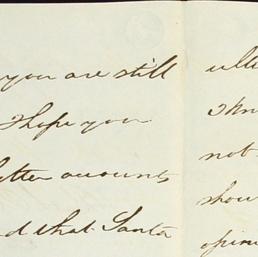 you are still
I hope you
accounts
d that Santa
ulti
I kn
not
show
opin